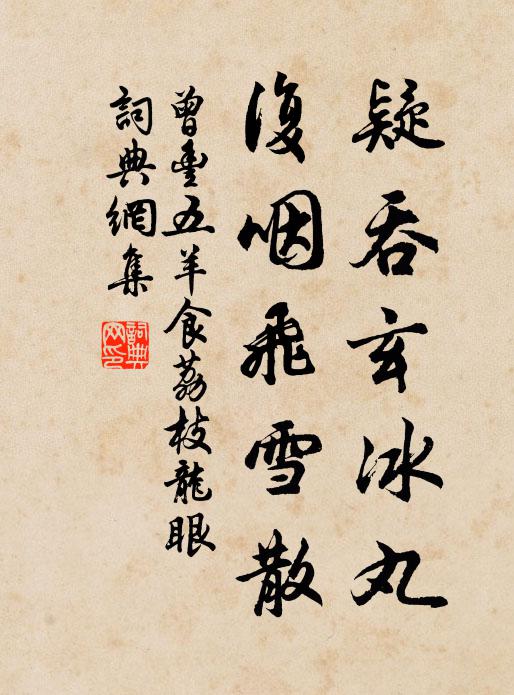 疑吞玄冰丸
復咽飛雪散
曾豐五羊食荔枝龍眼
詞典網集
詞典網印